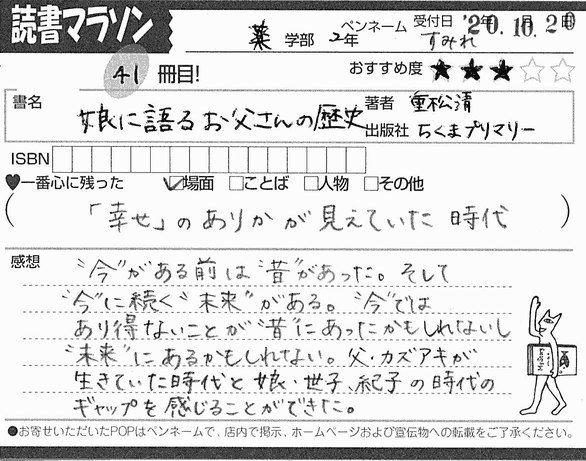 読書マラソン
薬 学部 2年
ペンネーム すみれ
受付日 '20.10.20
41 冊目!
おすすめ度 ★★★☆☆
書名 娘に語るお父さんの歴史
著者 重松清
出版社 ちくまプリマリー
ISBN
♥一番心に残った ☑場面 □ことば □人物 □その他
(「幸せ」のありかが見えていた時代)
感想
“今”がある前は“昔”があった。そして
“今”に続く“未来”がある。“今”では
あり得ないことが“昔”にあったかもしれないし
“未来”にあるかもしれない。父・カズアキが
生きていた時代と娘・世子、紀子の時代の
ギャップを感じることができた。
●お寄せいただいたPOPはペンネームで、店内で掲示、ホームページおよび宣伝物への転載をご了承ください。